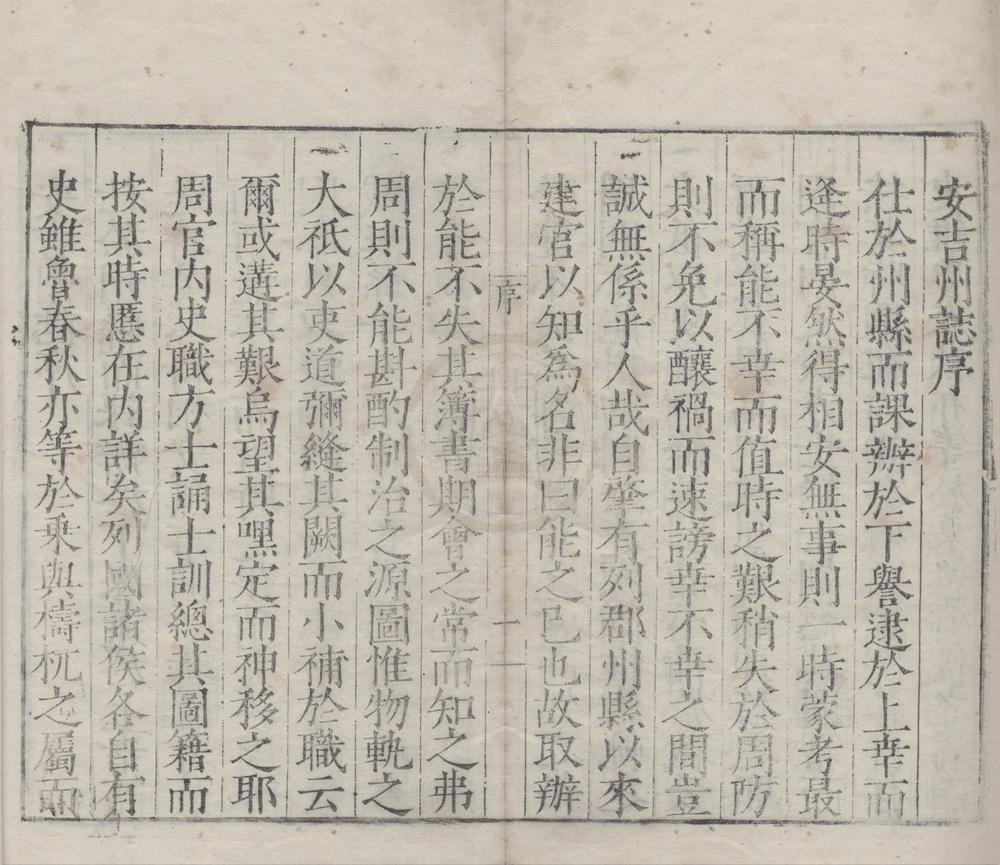 安吉州誌序
仕於州縣而課辦於下譽逮於上幸而
逢時晏然得相安無事則一時蒙考最
而稱能不幸而值時之艱稍失於周防
則不免以釀禍而速謗幸不幸之間豈
誠無係乎人哉自肇有列郡州縣以來
建官以知為名非曰能之已也故取辦
序
一
於能不失其簿書期會之常而知之弗
周則不能斟酌制治之源圖惟物軌之
大祗以吏道彌縫其闕而小補於職云
爾或遘其艱烏望其嘿定而神移之耶
周官內史職方士誦士訓總其圖籍而
按其時慝在內詳矣列國諸侯各自有
史雖魯春秋亦等於乗與檮杌之屬而